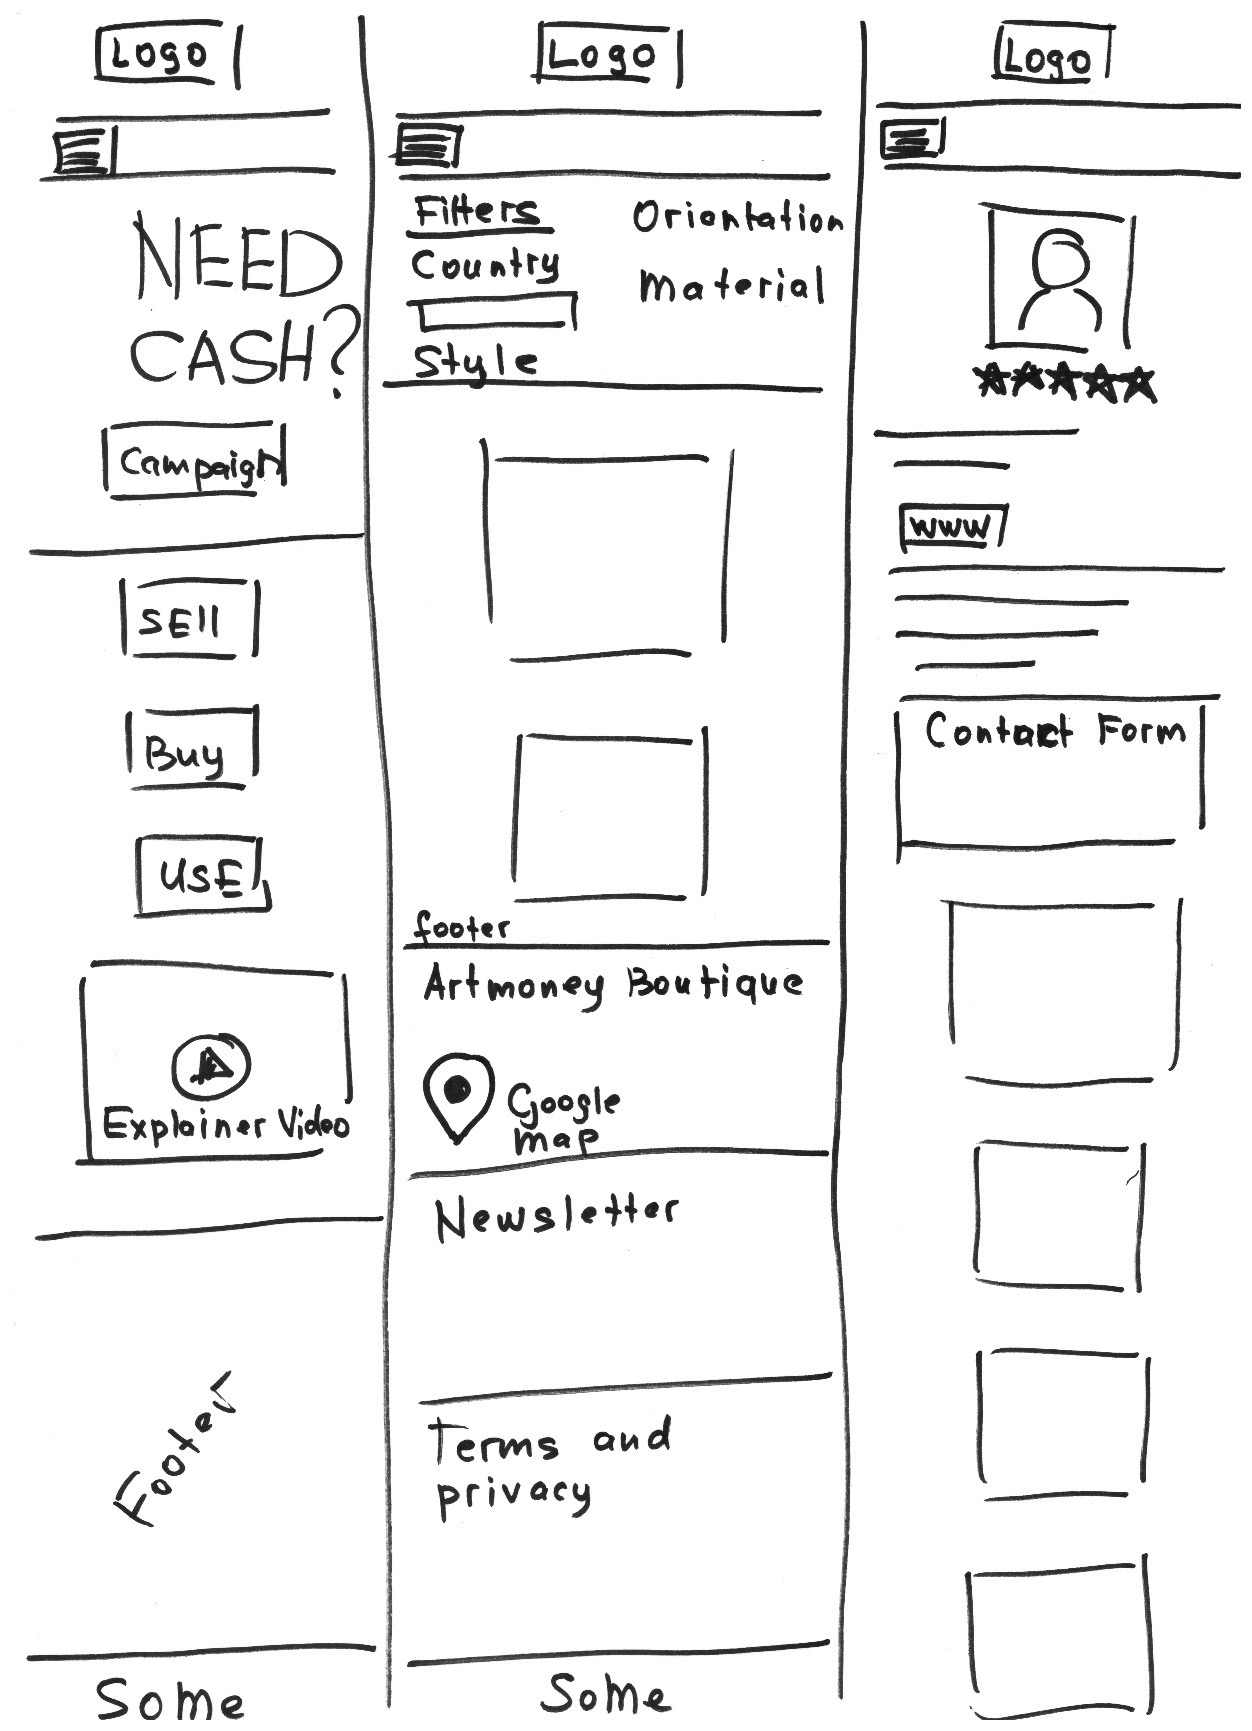 Logo
NEED
CASH?
Campaign
SEll
Buy
USE
Explainer Video
Footer
Some
Logo
Filters
Orientation
Country
Material
Style
footer
Artmoney Boutique
Google
map
Newsletter
Terms and
privacy
Some
Logo
WWW
Contact Form